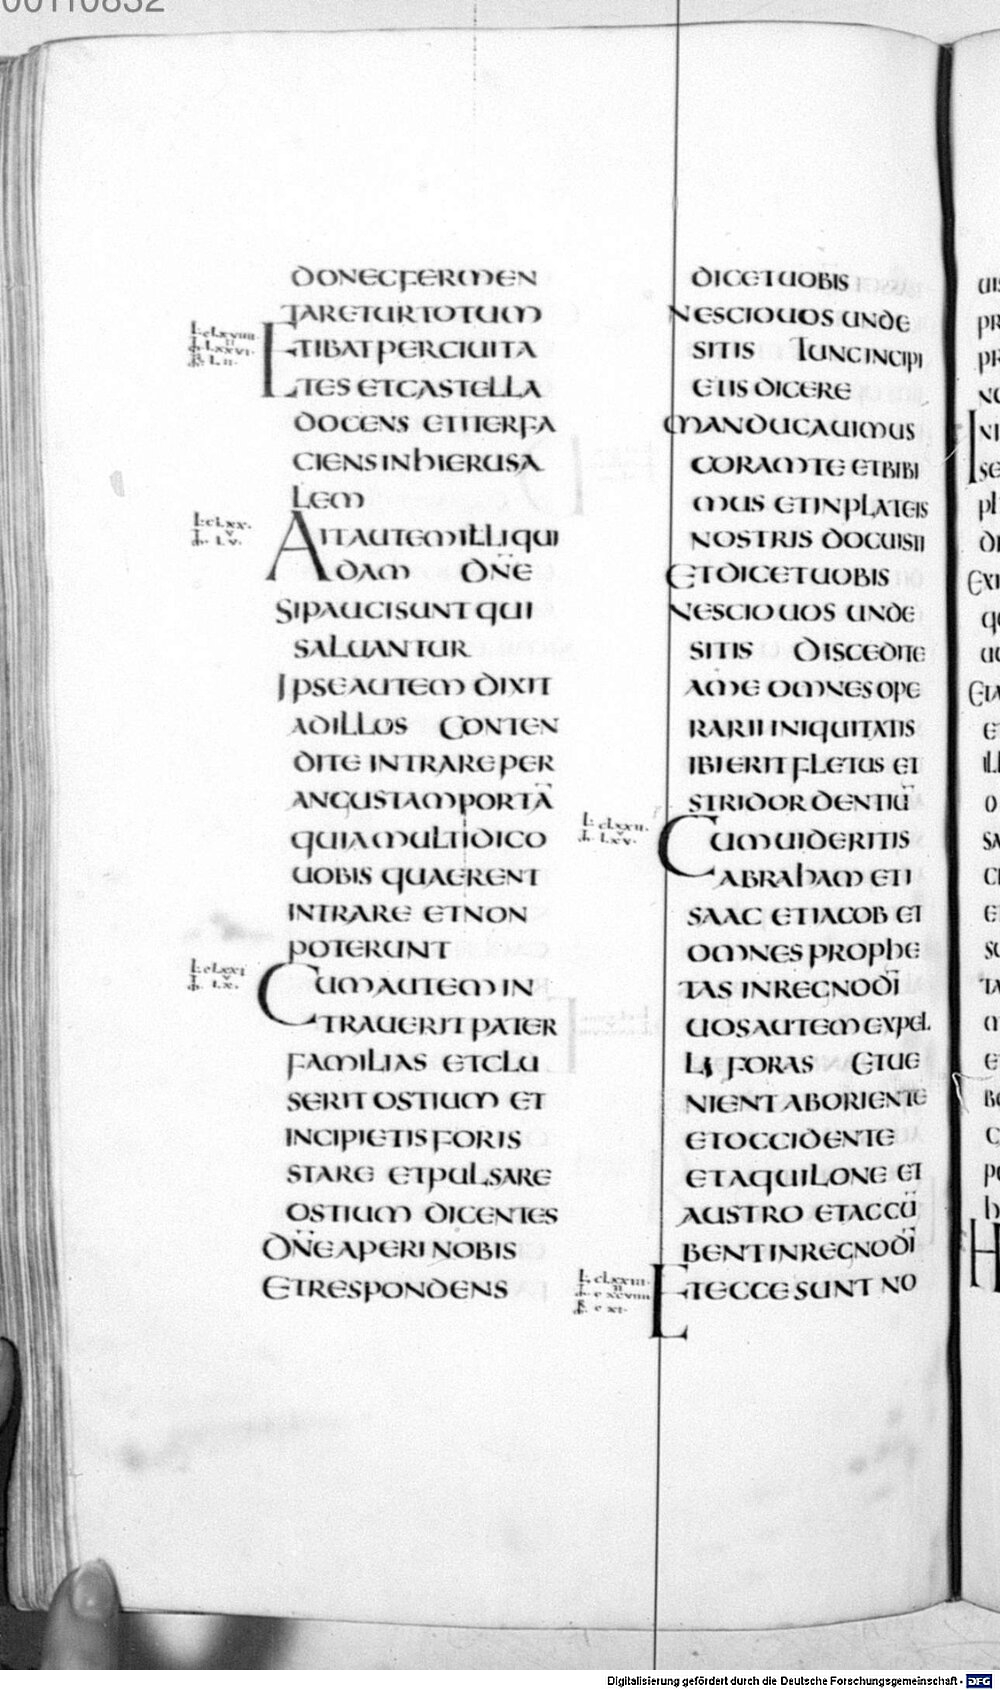 00110832
DONECFERMEN
TARETURTOTUM
ETIBATPERCIUITA
TES ETCASTELLA
DOCENS ETITERFA
CIENSINHIERUSA
LEM
AITAUTEMILLIQUI
DAM DN̄E
SIPAUCISUNTQUI
SALUANTUR
IPSEAUTEM DIXIT
ADILLOS CONTEN
DITE INTRAREPER
ANGUSTAMPORTĀ
QUIAMULTIDICO
UOBIS QUAERENT
INTRARE ETNON
POTERUNT
CUMAUTEMIN
TRAUERITPATER
FAMILIAS ETCLU
SERITOSTIUM ET
INCIPIETISFORIS
STARE ETPULSARE
OSTIUM DICENTES
DN̄EAPERINOBIS
ETRESPONDENS
DICETUOBIS
NESCIOUOS UNDE
SITIS TUNCINCIPI
ETIS DICERE
MANDUCAUIMUS
CORAMTE ETBIBI
MUS ETINPLATEIS
NOSTRIS DOCUISTI
ETDICETUOBIS
NESCIOUOS UNDE
SITIS DISCEDITE
AME OMNESOPE
RARIIINIQUITATIS
IBIERITFLETUS ET
STRIDORDENTIŪ
CUMUIDERITIS
ABRAHAM ETI
SAAC ETIACOB ET
OMNESPROPHE
TAS INREGNODĪ
UOSAUTEMEXPEL
LI FORAS ETUE
NIENTABORIENTE
ETOCCIDENTE
ETAQUILONE ET
AUSTRO ETACCŪ
BENTINREGNODĪ
ETECCESUNTNO
Digitalisierung gefördert durch die Deutsche Forschungsgemeinschaft - DFG